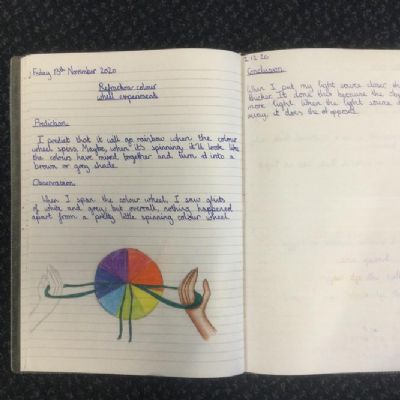 Friday 13th November 2020
Refraction colour
wheel experiment
Prediction
I predict that it will go rainbow when the colour
wheel spins. Maybe, when it's spinning it'll look like
the colours have mixed together and turn it into a
brown or grey shade.
Observation
When I span the colour wheel, I saw glints
of white and grey but overall nothing happened
apart from a pretty little spinning colour wheel.
2.12.20
Conclusion
When I put my light source closer the
thicker. It does this because the
more light. When the light source
away, it does the opposite.